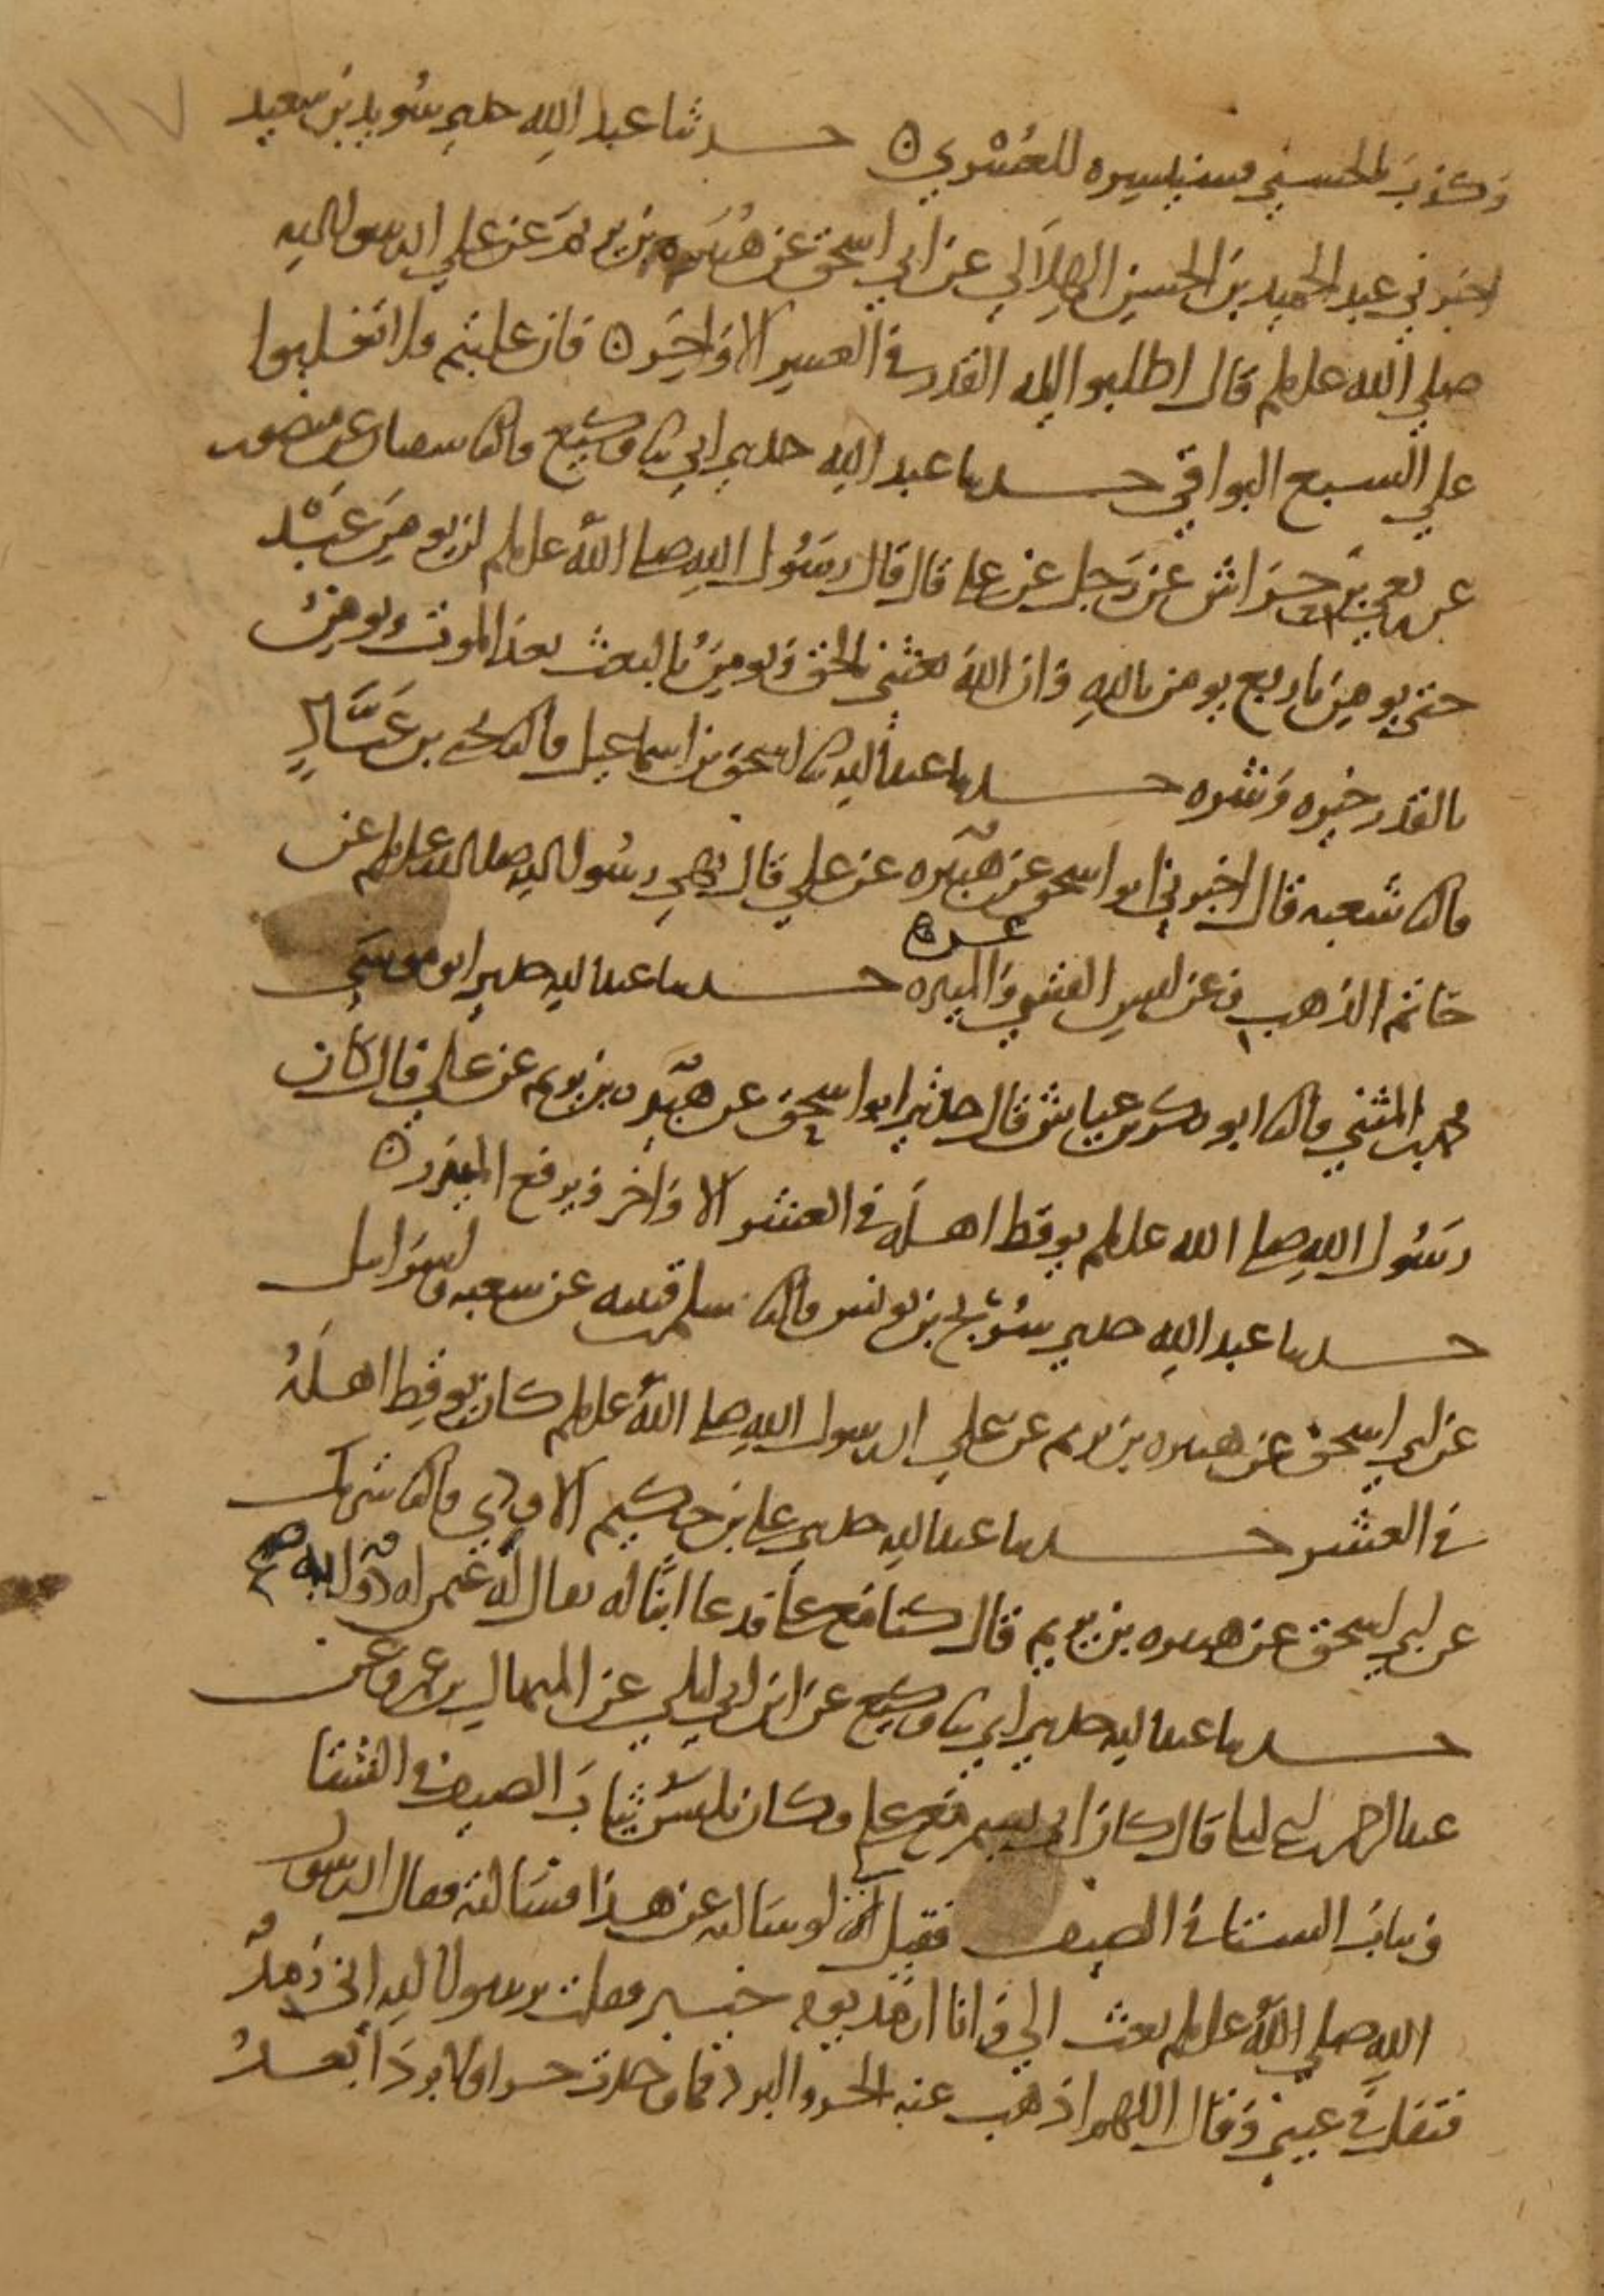 وكذب بالحسنى فسنيسره للعسرى ه حدثنا عبد الله حدثني سويد بن سعيد
اخبرني عبد الحميد بن الحسن الهلالي عن ابي اسحق عن هبيرة بن يريم عن علي ان رسول الله
صلى الله علىلم قال اطلبوا ليله القدر في العشر الاواخر ه فان غلبتم فلا تغلبوا
على السبع البواقي حدثنا عبد الله حدثني ابي ثنا وكيع قال ثنا سفيان عن منصور
عن ربعي بن حراش عن رجل عن علي قال قال رسول الله صلى الله علىلم لن يومن عبد
حتى يومن باربع يومن بالله وان الله بعثني بالحق ويومن بالبعث بعد الموت ويومن
بالقدر خيره وشره حدثنا عبد الله ثنا اسحق بن اسماعيل قال ثنا يحيى بن عباد
قال ثنا شعبه قال اخبرني ابو اسحق عن هبيره عن علي قال نهى رسول الله صلى الله علىلم عن
خاتم الذهب وعن لبس القسي والميره حدثنا عبد الله حدثني ابو موسى
محمد بن المثنى قال ثنا ابو بكر بن عياش قال حدثني ابو اسحق عن هبيره بن يريم عن علي قال كان
رسول الله صلى الله علىلم يوقظ اهله في العشر الاواخر ويرفع الميزر ه
حدثنا عبد الله حدثني سريج بن يونس قال ثنا سلم بن قتيبه عن شعبه واسرايل
عن ابي اسحق عن هبيره بن يريم عن علي ان رسول الله صلى الله علىلم كان يوقظ اهله
في العشر حدثنا عبد الله حدثني علي بن حكيم الاودي قال ثنا شريك
عن ابي اسحق عن هبيره بن يريم قال كنا مع علي فدعا ابنا له يقال له عثمن له ذوابه
حدثنا عبد الله حدثني ابي ثنا وكيع عن ابن ابي ليلى عن المنهال بن عمرو عن
عبد الرحمن بن ابي ليلى قال كان ابي يسمر مع علي وكان يلبس ثياب الصيف في الشتا
وثياب الشتا في الصيف فقيل له لو سالته عن هذا فسالته فقال ان رسول
الله صلى الله علىلم بعث الي وانا ارمد يوم خيبر فقلت يرسول الله اني رمد
فتفل في عيني وقال اللهم اذهب عنه الحر والبرد فما وجدت حرا ولا بردا بعد